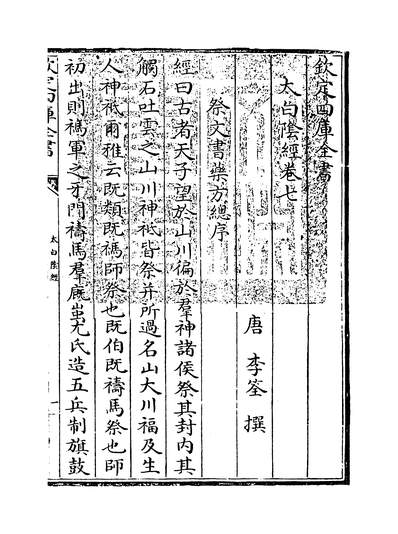 欽定四庫全書
太白陰經卷七
唐 李筌 撰
祭文書藥方總序
經曰古者天子望於山川徧於羣神諸侯祭其封內其
觸石吐雲之山川神祗皆祭并所過名山大川福及生
人神祗爾雅云既類既禡師祭也既伯既禱馬祭也師
初出則禡軍之牙門禱馬羣厩蚩尤氏造五兵制旗鼓
欽定四庫全書
太白陰經